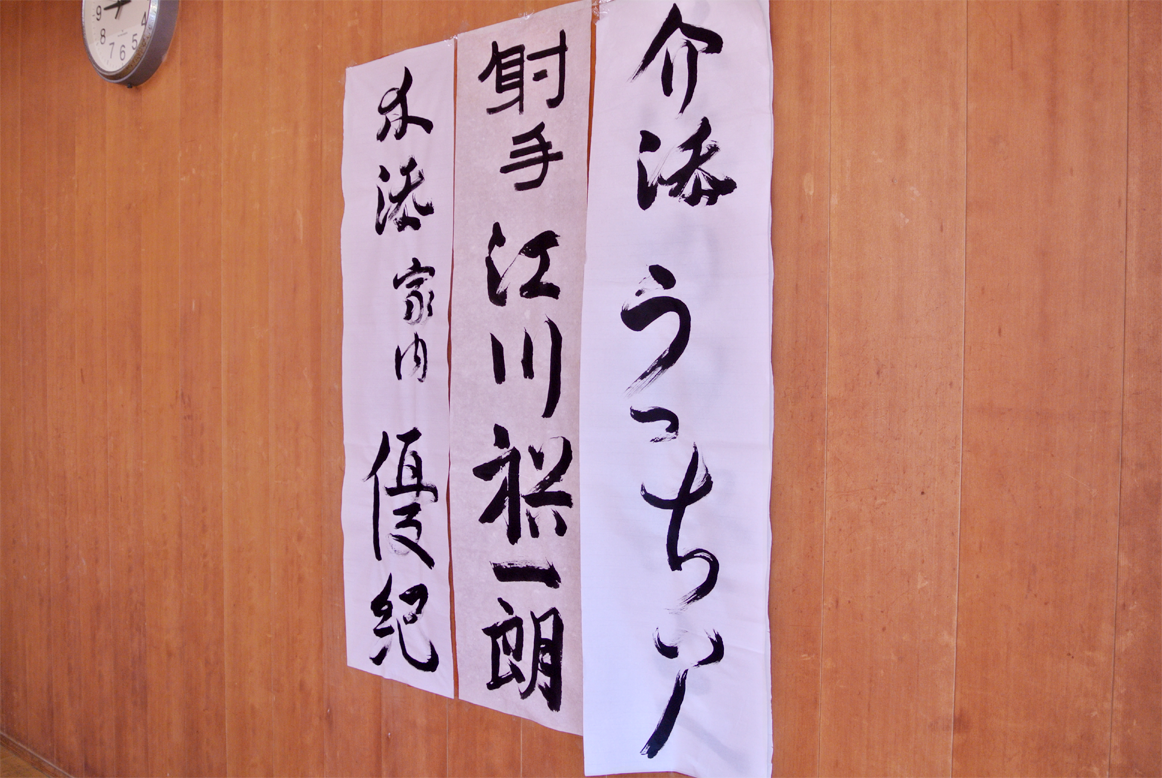 介添 うっちぃー
射手 江川 裕一朗
介添 家内 優紀
9 8 7 6 5 4